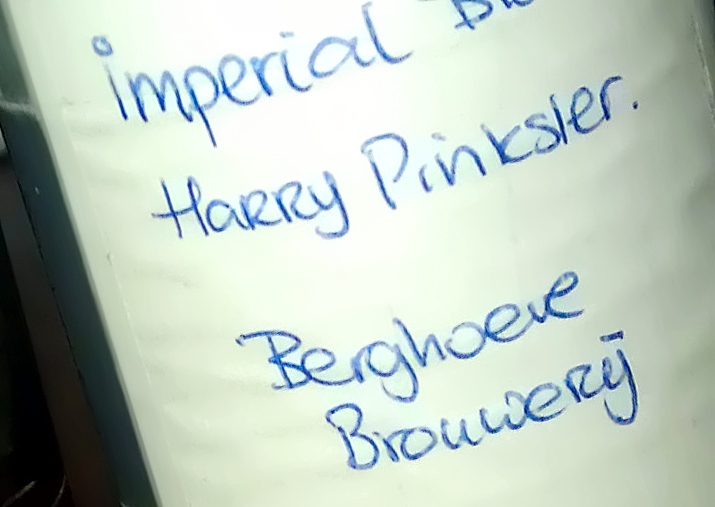 Imperial
Harry Pinkster.
Berghoeve
Brouwerij